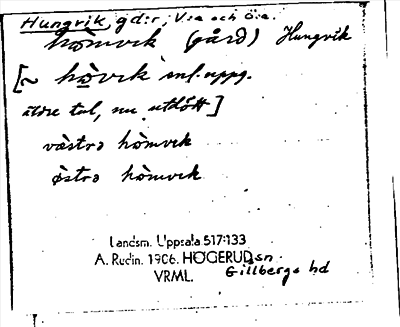 Hungvik, gd:r, V:a och Ö:a.
hòmvek (gård) Hungvik
[~ hòvek enl. uppg.
äldre tal, nu utdött]
vàstrə hòmvek
østrə hòmvek
Landsm. Uppsala 517:133
A. Rudin. 1906. HÖGERUDsn
VRML. Gillbergs hd